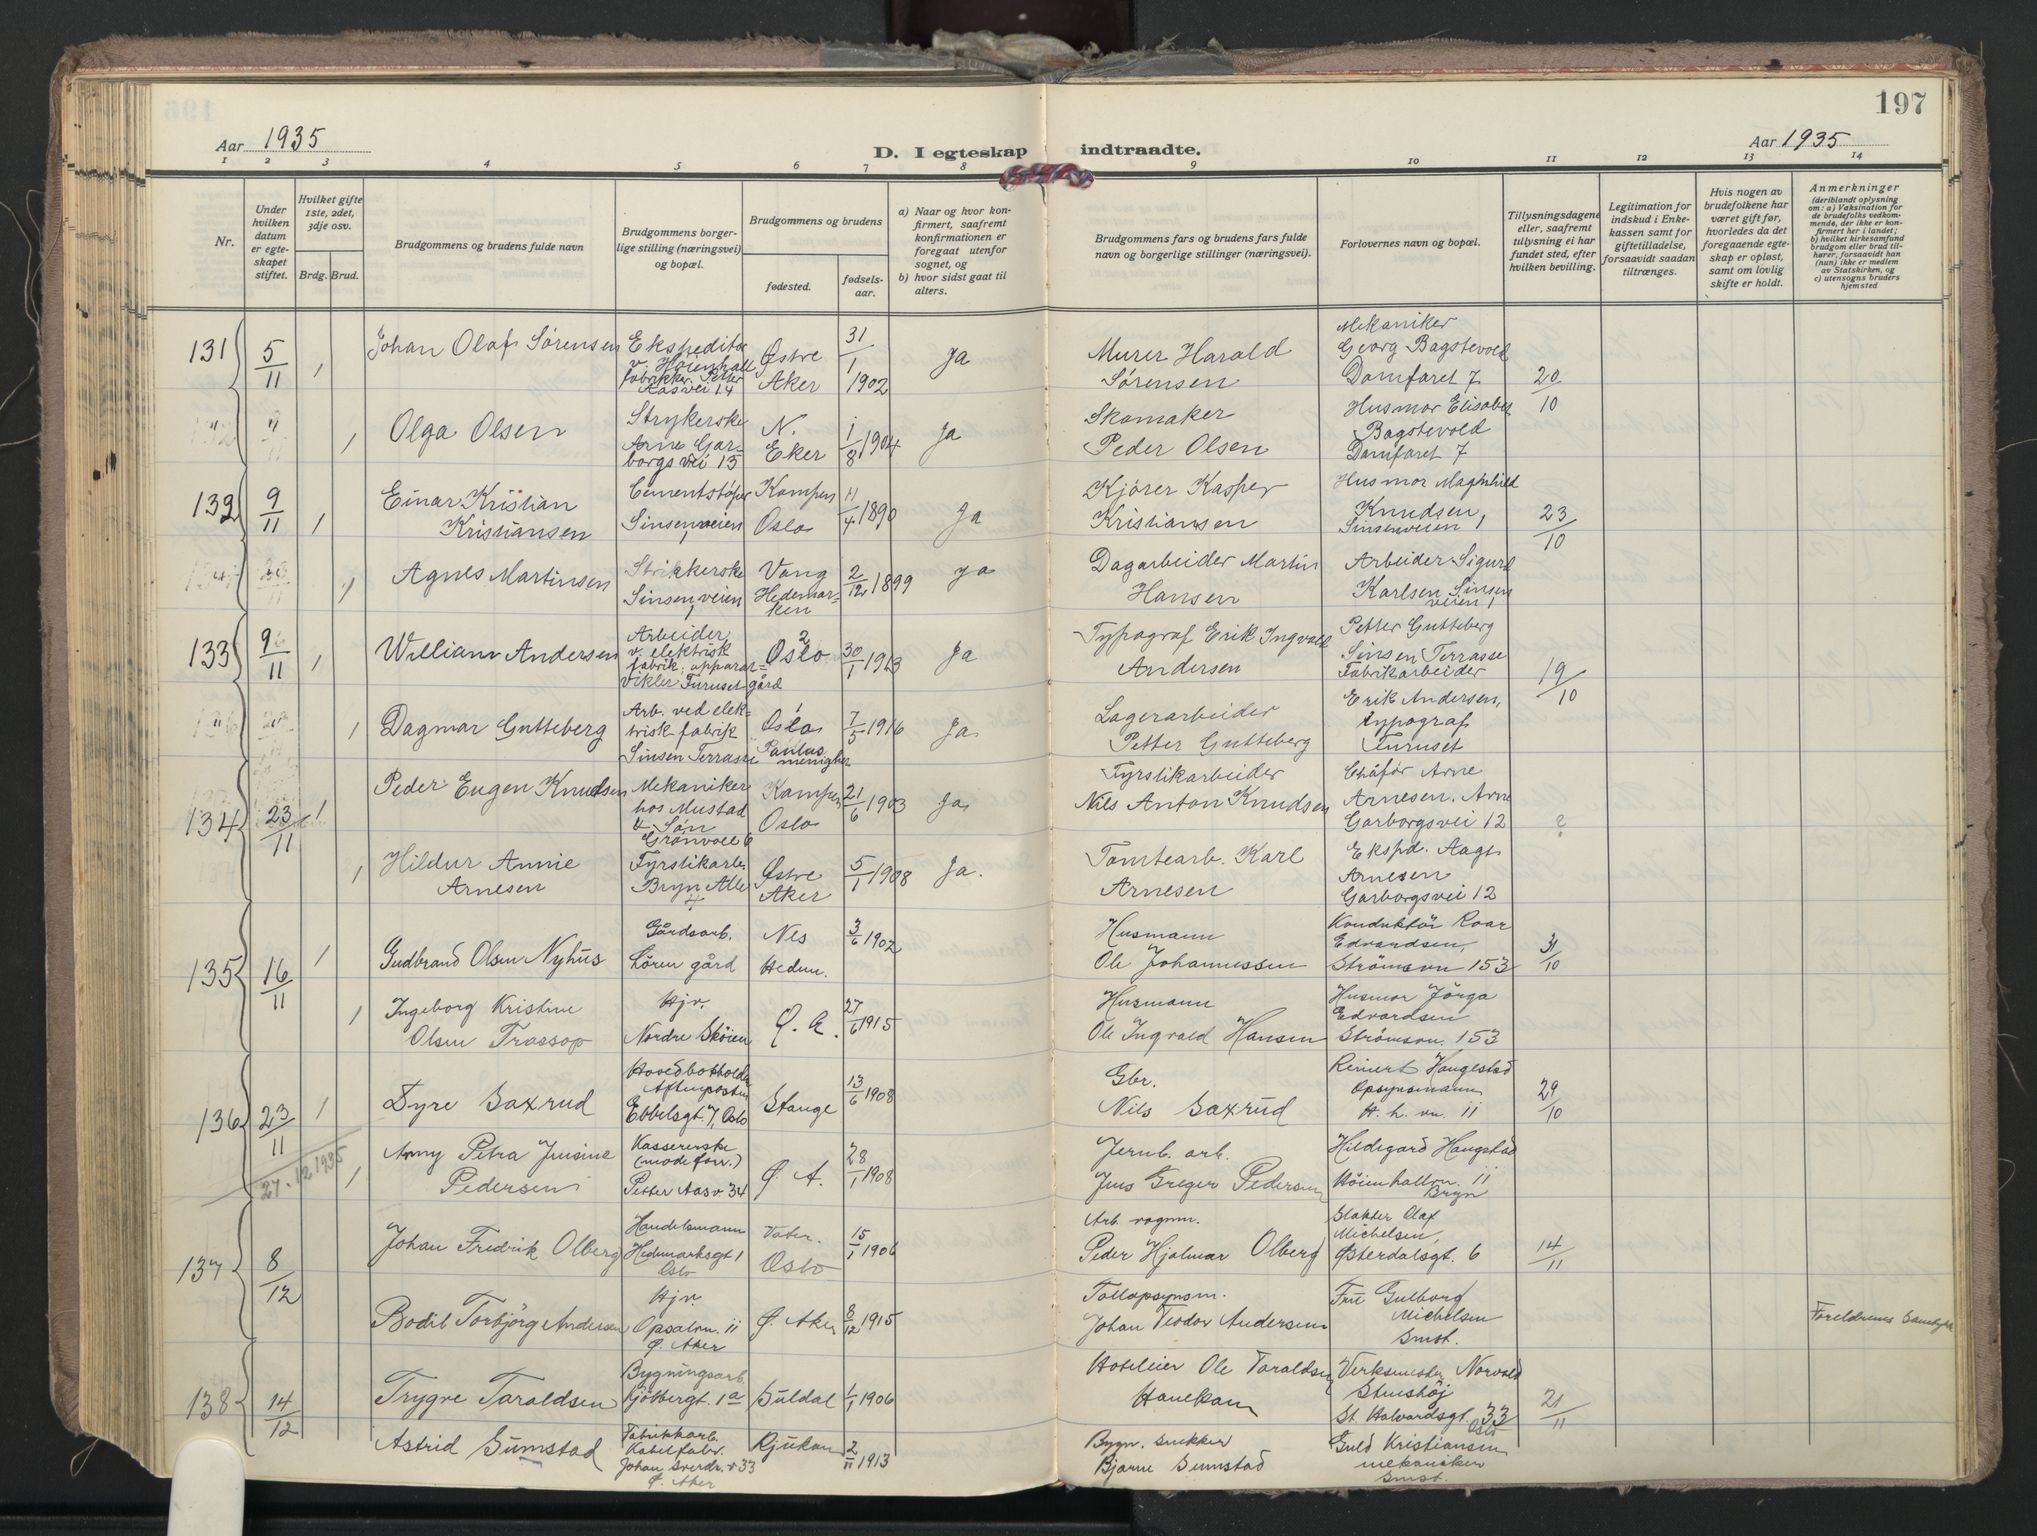 197
Aar 1935
D. I egteskap indtraadte.
Aar 1935
1 2 3 4 5 6 7 8 9 10 11 12 13 14
Nr.
Under hvilken datum er egteskapet stiftet.
Hvilket gifte 1ste, 2det, 3dje osv.
Brdg. Brud.
Brudgommens og brudens fulde navn
Brudgommens borgerlige stilling (næringsvei) og bopæl.
Brudgommens og brudens
fødested.
fødselsaar.
a) Naar og hvor konfirmert, saafremt konfirmationen er foregaat utenfor sognet, og
b) hvor sidst gaat til alters.
Brudgommens fars og brudens fars fulde navn og borgerlige stillinger (næringsvei).
Forlovernes navn og bopæl.
Tillysningsdagene eller, saafremt tillysning ei har fundet sted, efter hvilken bevilling.
Legitimation for indskud i Enkekassen samt for giftetilladelse, forsaavidt saadan tiltrænges.
Hvis nogen av brudefolkene har været gift før, hvorledes da det foregaaende egteskap er opløst, samt om lovlig skifte er holdt.
Anmerkninger
(deriblandt oplysning om: a) Vaksination for de brudefolks vedkommende, der ikke er konfirmert her i landet; b) hvilket kirkesamfund brudgom eller brud tilhører, forsaavidt han (hun) ikke er medlem av Statskirken, og c) utensogns bruders hjemsted
131 5/11 1 Johan Olaf Sørensen Ekspeditør v. Høienhall fabrikker. Petter Aasvei 14 Østre Aker 31/1 1902 Ja Murer Harald Sørensen Mekaniker Georg Bagstevold Damfaret 7 20/10
" 1 Olga Olsen Strykerske Arne Garborgs vei 15 N. Eker 1/8 1904 Ja Skomaker Peder Olsen Husmor Elisabet Bagstevold Damfaret 7
132 9/11 1 Einar Kristian Kristiansen Cementstøper Sinsenveien 1 Kampen Oslo 11/4 1890 Ja Kjører Kasper Kristiansen Husmor Magnhild Knudsen, Sinsenveien 1 23/10
1 Agnes Martinsen Strikkerske Sinsenveien 1 Vang Hedemarken 2/12 1899 Ja Dagarbeider Martin Hansen Arbeider Sigurd Karlsen Sinsenveien 1
133 9/11 1 William Andersen Arbeider v. elektrisk fabrik; apparatvikler Furuset gård Oslo 30/1 1913 Ja Typograf Erik Ingvald Andersen Petter Gutteberg Sinsen Terrasse Fabrikarbeider 19/10
" 1 Dagmar Gutteberg Arb. ved elektrisk fabrik Sinsen Terrasse Oslo Paulus menighet 7/5 1916 Ja Lagerarbeider Petter Gutteberg Erik Andersen, typograf Furuset
134 23/11 1 Peder Eugen Knudsen Mekaniker hos Mustad & Søn Grønvoll 6 Kampen Oslo 21/6 1903 Ja Fyrstikarbeider Nils Anton Knudsen Chåfør Arne Arnesen. Arne Garborgsvei 12 ?
1 Hildur Annie Arnesen Fyrstikarb. Bryn Alle 4 Østre Aker 5/1 1908 Ja. Tomtearb. Karl Arnesen Ekspd. Aagot Arnesen Garborgsvei 12
135 16/11 1 Gudbrand Olsen Nyhus Gårdsarb. Lören gård Nes Hedm. 3/6 1902 Husmann Ole Johannessen Konduktör Roar Edvardsen, Strömsvn 153 31/10
1 Ingeborg Kristine Olsen Trossop Hjv. Nordre Sköien Ø. A. 27/6 1915 Husmann Ole Ingvald Hansen Husmor Edvardsen Strömsvn. 153
136 23/11 1 Syre Saxrud Hovedbokholder Aftenposten Ebbelsgt. 7, Oslo Stange 13/6 1908 Gbr. Nils Saxrud Reinert Haugestad Opsynsmann H. h. vn. 11 29/10
27.12.1935 1 Anny Petra Jensine Pedersen Kassererske (modeforr.) Petter Aasv 34 Ø. A. 28/1 1908 Jernb. arb. Jens Greger Pedersen Hildegard Haugstad Höienhallvn. 11 Bryn
137 8/12 Johan Fredrik Olberg Handelsmann Hedmarksgt 1 Oslo Vater. Oslo 15/1 1906 Arb. vognm. Peder Hjalmar Olberg Slakter Olaf Michelsen, Østerdalsgt. 6 14/11
Bodil Torbjörg Andersen Hjv. Opsalvn. 11 Ø. Aker Ø. Aker 8/12 1915 Tollopsynsm. Johan Teodor Andersen Fru Gulborg Michelsen Smst. Foreldrenes Samtykke
138 14/12 Trygve Taraldsen Bygningsarb. Kjölbergt. 1a Suldal 1/1 1906 Hoteleier Ole Taraldsen Verksmester Norvald Stenshöj St. Halvardsgt. 33 Oslo 21/11
Astrid Sumstad Fabrikkarb. Kabelfabr. Johan Sverdr. v 33 Ø. Aker Rjukan 2/11 1913 Bygn. snekker Bjarne Sumstad Guld Kristiansen mekaniker Smst.